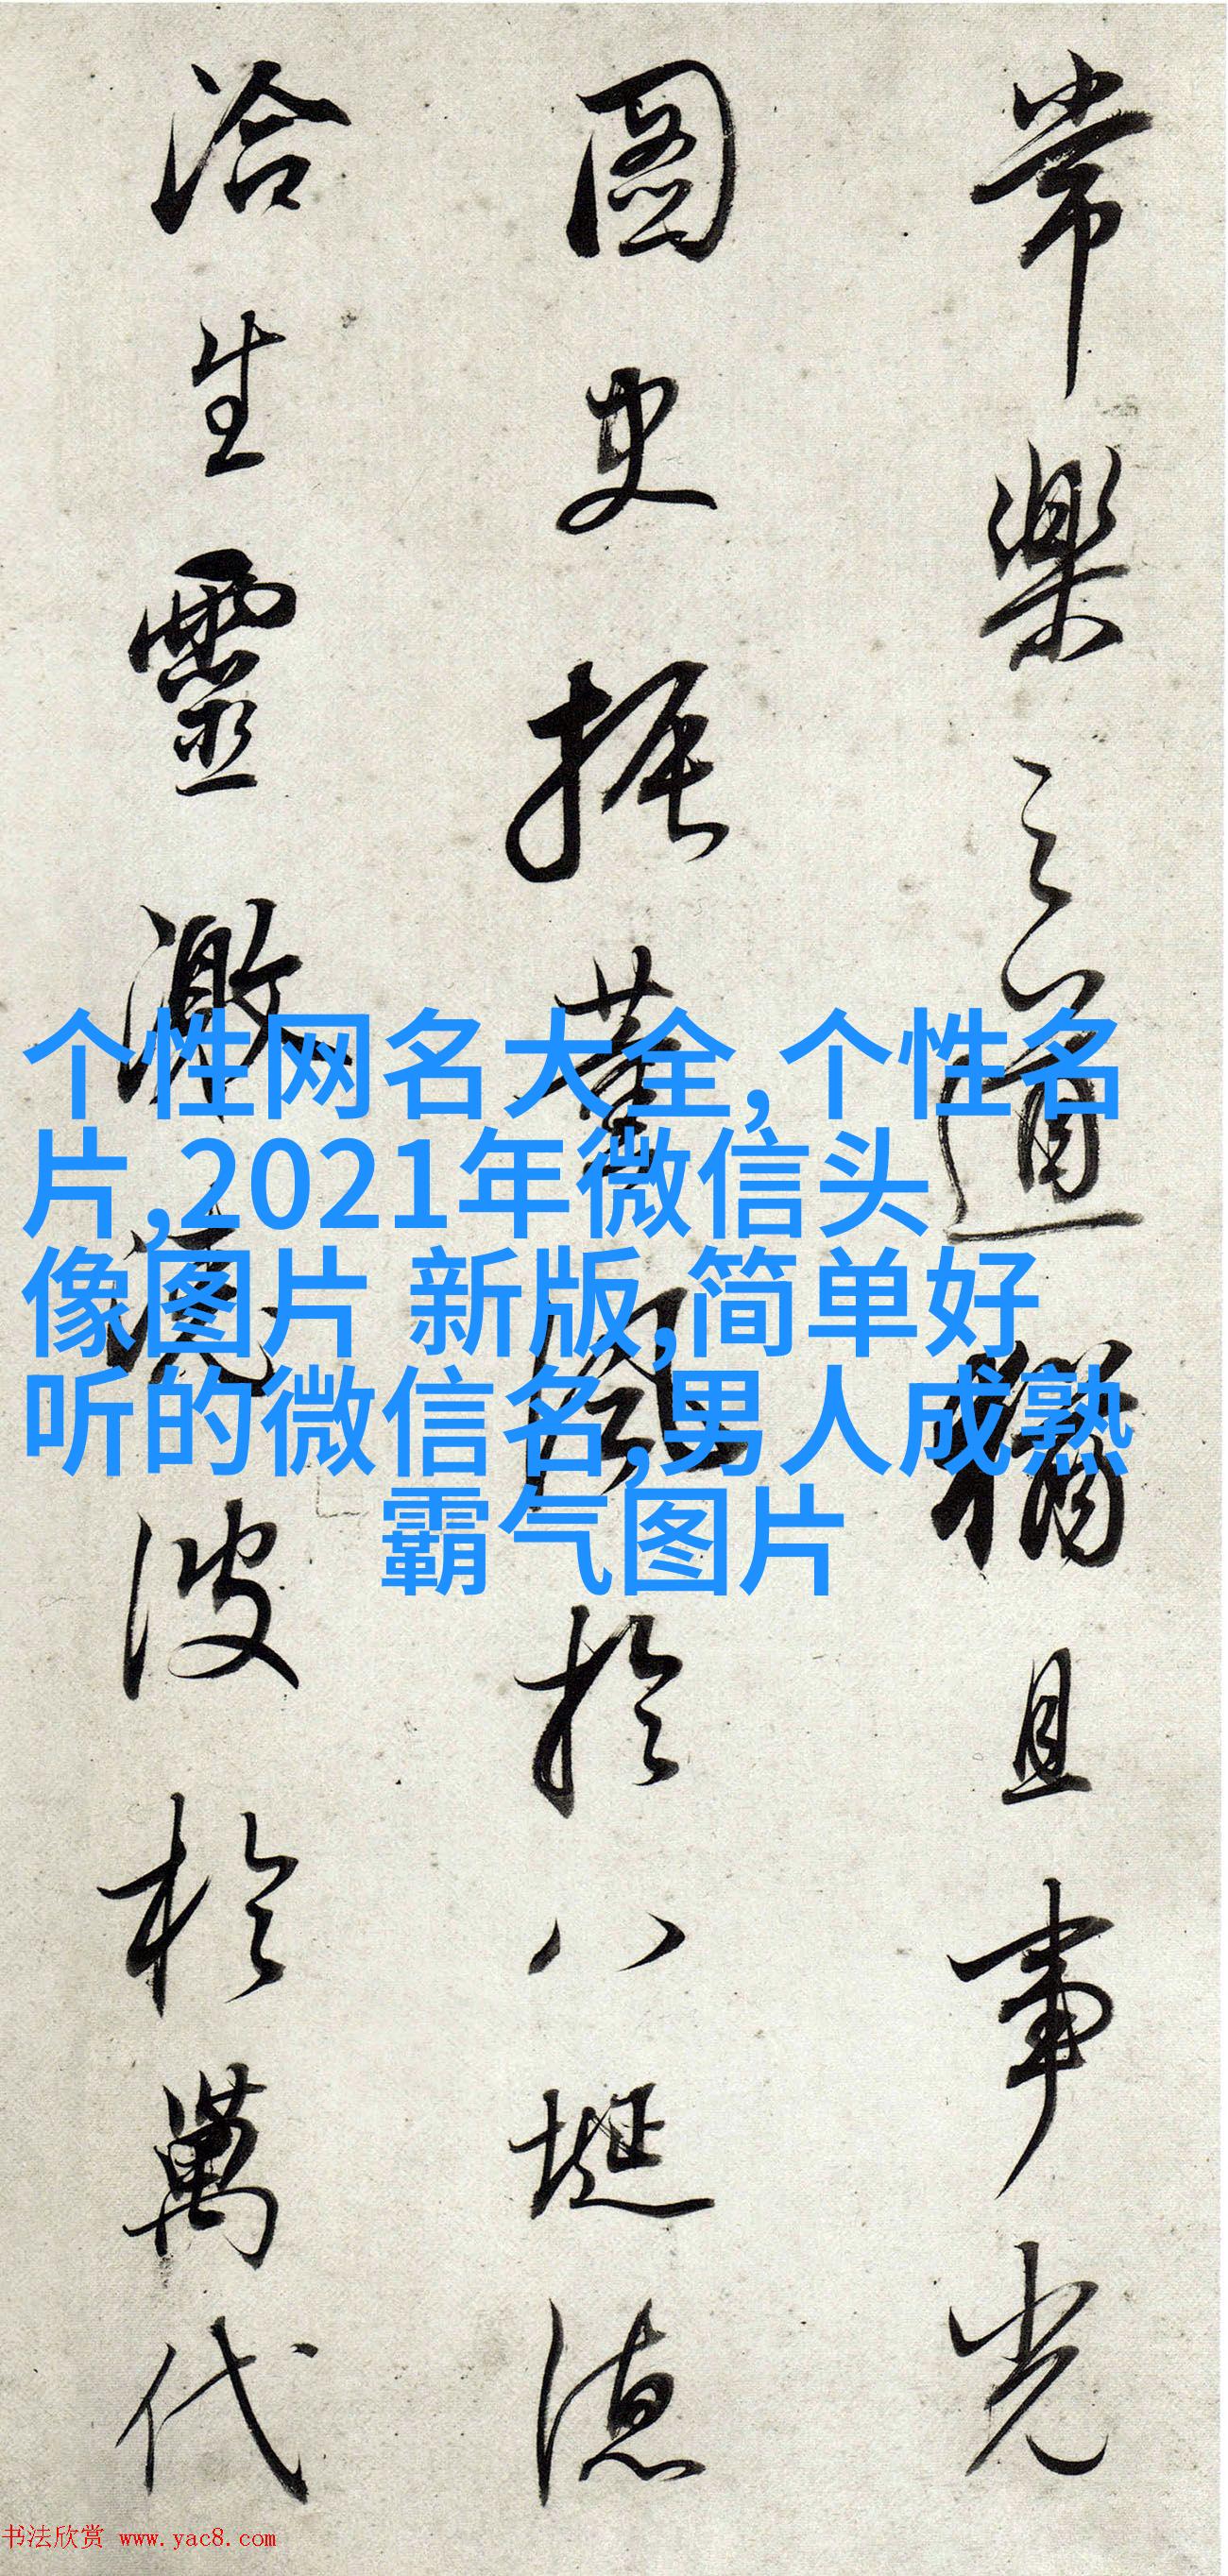 常樂之道猶且事光
圖史振薰風於八埏德
洽生靈激流波於萬代
个性网名大全,个性名
片,2021年微信头
像图片 新版,简单好
听的微信名,男人成熟
霸气图片
书法欣赏 www.yac8.com